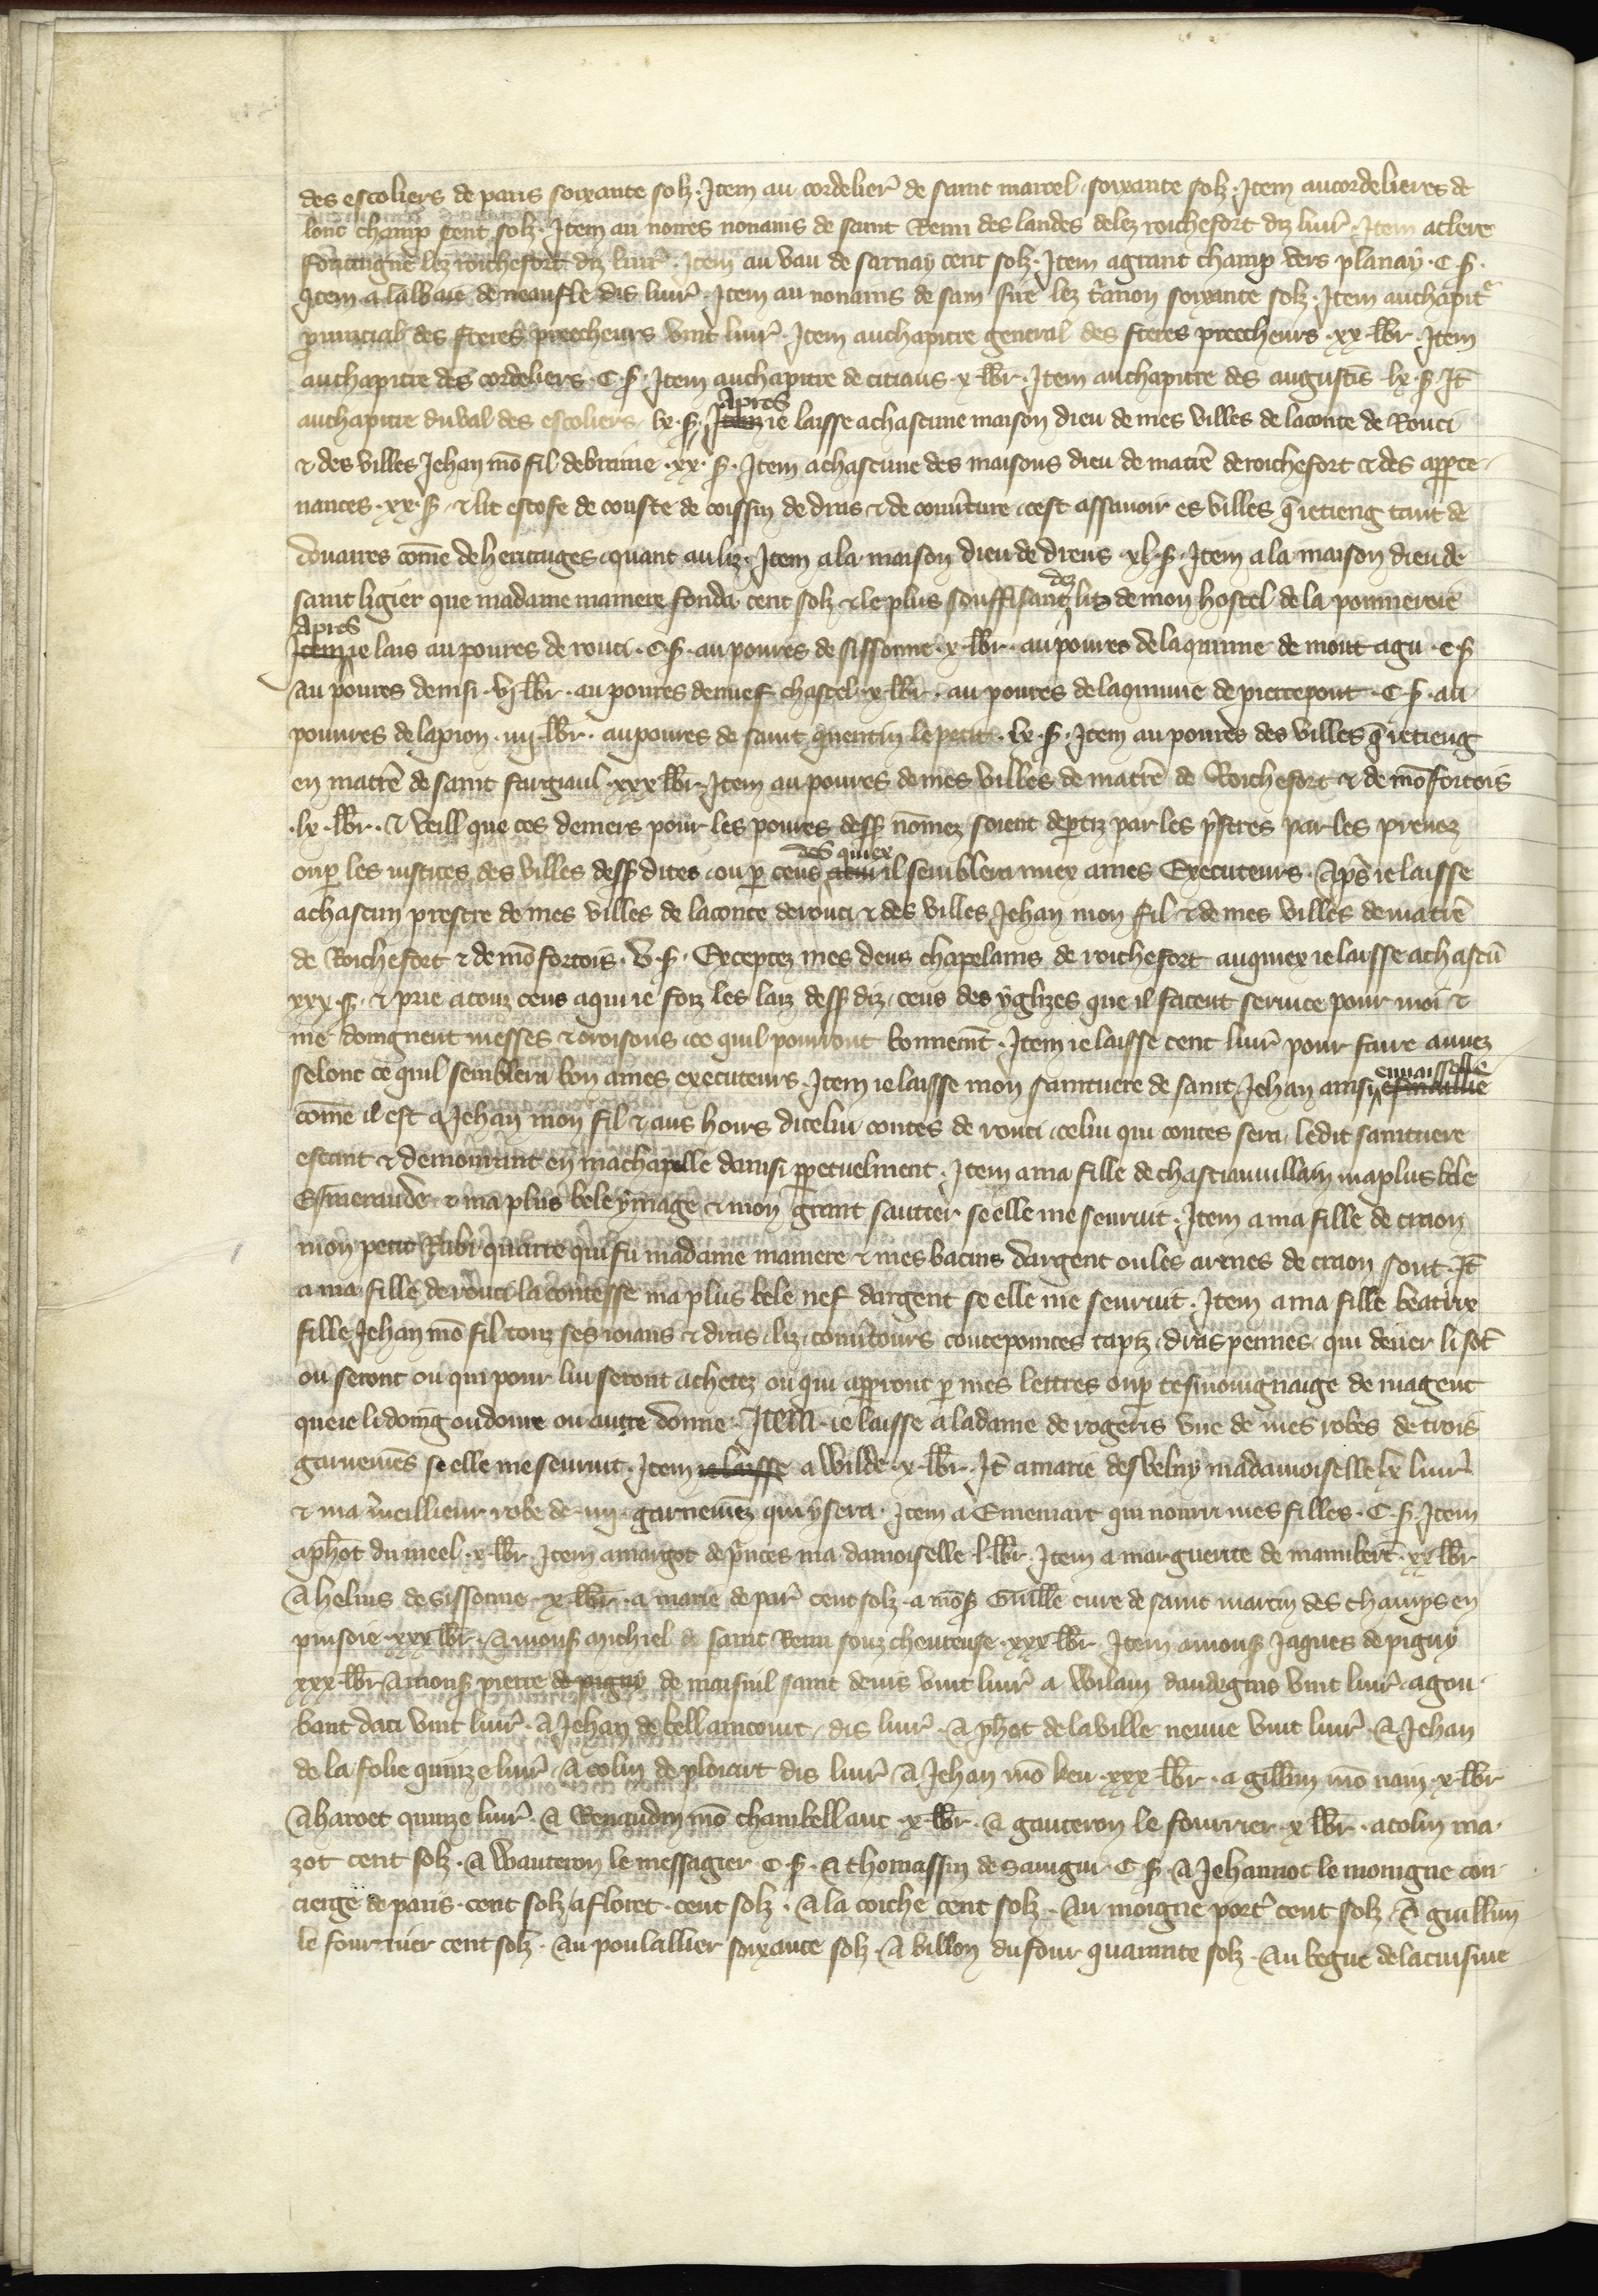 des escoliers de paris soixante solz · Item au cordelier̃ de saint marcel · soixante solz · Item au cordelieres de
lonc champ cent solz · Item au noires nonains de saint Remi des landes delez roichefort diz liur̃ · Item a clere
fonteigne lez roichefort diz liur̃ · Item au vau de sarnay cent solz · Item a grant champ vers planay · C · s̃ ·
Item a labbaie de neaufle dis liur̃ · Item au nonains de sain lez soixante solz · Item au chapit̃
prouicial des freres preecheurs vint liur̃ · Item au chapitre general des freres preecheurs · xx · lbr̃ · Item
au chapitre des cordeliers · C · s̃ · Item au chapitre de citiaus · x · lbr̃ · Item au chapitre des augustĩs · lx · s̃ · It̃
au chapitre du val des escoliers · lx · s̃ · Item Apres ie laisse a chascune maison dieu de mes villes de la conte de Rouci
& des villes Jehan mõ fil de braine · xx · s̃ · Item a chascune des maisons dieu de ma tr̃e de roichefort & des apperte
nances · xx · s̃ · & lit estofe de couste de coissin de dras & de couũture · cest assauoir es villes q̃ ie tieng tant de
douaires com̃e de heritages · quant au liz · Item a la maison dieu de dreus · xl · s̃ · Item a la maison dieu de
saint ligier que madame ma mere fonda · cent solz & le plus souffisant dez liz de mon hostel de la pommereie
Item Apres ie lais au poures de rouci · C · s̃ · au poures de sissonne · x · lbr̃ · au poures de la quinne de mont agu · C · s̃
au poures de nisi · vj lbr̃ · au poures de nuef chastel · x · lbr̃ · au poures de la quinne de pierrepont · C · s̃ · au
pouures de lapion · iiij · lbr̃ · au poures de saint quentin le petit · lx · s̃ · Item au poures des villes q̃ ie tieng
en ma tr̃e de saint fargiaul · xxx lbr̃ · Item au poures de mes villes de ma tr̃e de Roichefort & de mõfortois
· lx · lbr̃ · & veill que ces deniers pour les poures dess̃ nõmez soient dep̃tiz par les p̃stres par les preuoz
ou p̃ les iustices des villes dess̃ dites · ou p̃ ceus des quiex il semblera miex a mes Executeurs · Ap̃s ie laisse
a chascun prestre de mes villes de la conte de rouci & des villes Jehan mon fil & de mes villes de ma tr̃e
de Roichefort & de mõfortois · v · s̃ · Exceptez mes deus chapelains de roichefort auquiex ie laisse a chascũ
xxx · s̃ · & prie a touz ceus a qui ie foiz les laiz dess̃ diz · ceus des yglizes que il facent seruice pour moi &
me doingnent messes & oroisons · ce quil pourront bonnemẽt · Item ie laisse cent liur̃ pour faire
selonc ce quil semblera bon a mes executeurs · Item ie laisse mon saintuere de saint Jehan ainsi esmaillie
com̃e il est a Jehan mon fil & aus hoirs dicelui contes de rouci · celui qui contes sera · ledit saintuere
estant & demourant en ma chapelle danisi p̃petuelment · Item a ma fille de chastiauuillain ma plus bele
Esmeraude · & ma plus bele ymage & mon grant sautier se elle me seuruit · Item a ma fille de craon
mon petit Rubi quarre qui fu madame ma mere & mes bacins dargent ou les armes de craon sont · It̃
a ma fille de rouci la contesse ma plus bele nef dargent se elle me seuruit · Item a ma fille beatrix
fille Jehan mõ fil touz ses ioiaus & dras · liz · couũtours coutepointes tapiz · dras pennes · qui deuer li sõt
ou seront ou qui pour lui seront achetez ou qui apperront p̃ mes lettres ou p̃ tesmoingnaige de ma gent
que ie li doing ou doinre ou autre donne · Item · ie laisse a la dame de rogeris vne de mes robes de trois
garnemẽs se elle me seuruit · Item ie laisse a Wilde · x · lbr̃ · It̃ a marie desbelny ma damoiselle lx liur̃
& ma meillieur robe de · iiij · garnemẽz qui y sera · Item a Emeniart qui nourri mes filles · C · s̃ · Item
a ph̃ot du meel · x · lbr̃ · Item a margot de p̃uces ma damoiselle · l · lbr̃ · Item a marguerite de mannibert · xx lbr̃
A heluis de sissonne · x · lbr̃ · a marie de par̃ cent solz · a mõs̃ Guille cure de saint martin des champs en
puisoie · xxx lbr̃ · A mons̃ michiel de saint Remi souz cheureuse · xxx lbr̃ · Item a mons̃ Jaques de pigny
xxx · lbr̃ A mons̃ pierre de pigny de maisnil saint denis vint liur̃ a Wilain daudegnis vint liur̃ · a gou
bant daci vint liur̃ · A Jehan de bellaincourt · dis liur̃ · A ph̃ot de la ville neuue vint liur̃ · A Jehan
de la folie quinze liur̃ · A colin de ploiart dis liur̃ · A Jehan mõ keu · xxx · lbr̃ · a gillin mõ nain · x · lbr̃
A haroet quinze liur̃ · A Renaudin mõ chambellanc · x · lbr̃ · A gauteron le fourrier · x lbr̃ · a colin ma
zot cent solz · A Wauteron le messagier · C · s̃ · A thomassin de sauigni · C s̃ · A Jehannot le moingne con
cierge de paris · cent solz a floret · cent solz · A la coiche cent solz · Au moigne port̃ cent solz · A guillin
le fournier cent solz · Au poulallier soixante solz · A billon du four quarante solz · Au begue de la cuisine